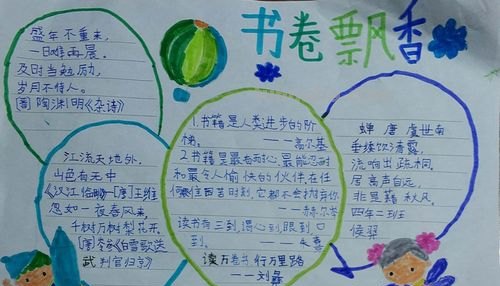 书卷飘香
盛年不重来,
一日难再晨。
及时当勉励,
岁月不待人。
陶渊明《杂诗》
江流天地外,
山色有无中
《汉江临眺》--[唐]王维
忽如一夜春风来,
千树万树梨花开。
[唐]岑参《白雪歌送
武判官归京》
1.书籍是人类进步的阶
梯。 ——高尔基
2.书籍是最有耐心,最能忍耐
和最令人愉快的伙伴,在任
何艰难困苦时刻,它都不会抛弃你
读书有三到,谓心到,眼到口
到。 ——朱熹
读万卷书行万里路
——刘彝
蝉 唐 虞世南
垂緌饮清露,
流响出疏桐。
居高声自远,
非是籍秋风。
四年二班
侯